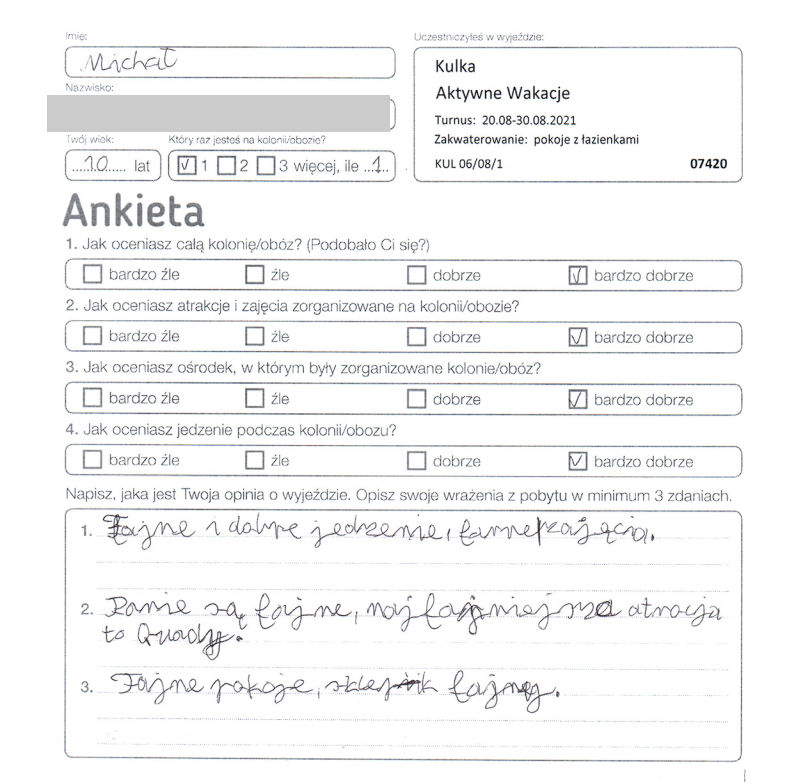 Imię:
Michał
Nazwisko:
Twój wiek:
Który raz jesteś na kolonii/obozie?
....10..... lat
1 2 3 więcej, ile ..1..
Uczestniczyłeś w wyjeździe:
Kulka
Aktywne Wakacje
Turnus: 20.08-30.08.2021
Zakwaterowanie: pokoje z łazienkami
KUL 06/08/1 07420
Ankieta
1. Jak oceniasz całą kolonię/obóz? (Podobało Ci się?)
bardzo źle źle dobrze bardzo dobrze
2. Jak oceniasz atrakcje i zajęcia zorganizowane na kolonii/obozie?
bardzo źle źle dobrze bardzo dobrze
3. Jak oceniasz ośrodek, w którym były zorganizowane kolonie/obóz?
bardzo źle źle dobrze bardzo dobrze
4. Jak oceniasz jedzenie podczas kolonii/obozu?
bardzo źle źle dobrze bardzo dobrze
Napisz, jaka jest Twoja opinia o wyjeździe. Opisz swoje wrażenia z pobytu w minimum 3 zdaniach.
1. Fajne i dobre jedzenie, zajęcia.
2. Panie są fajne, najfajniejsza atracja
to Quady.
3. Fajne pokoje, sklepik fajny.